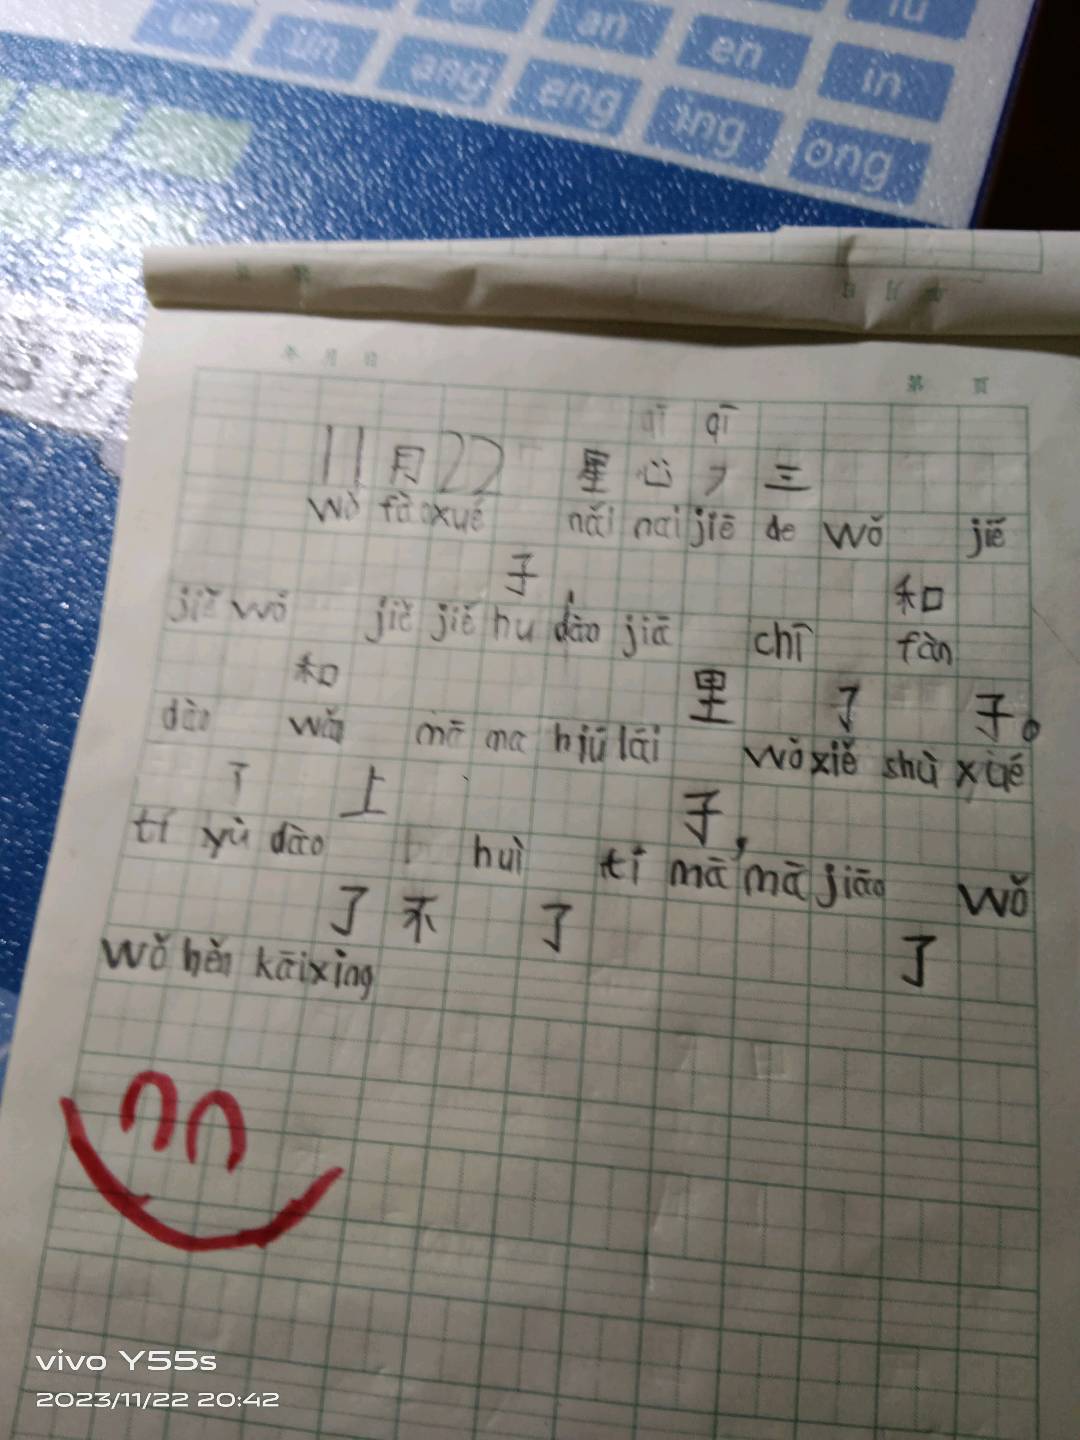 iu
un
ün
er
an
en
in
ang
eng
ing
ong
年 月 日
第 页
qī
11月22 星 三
wǒ fàoxué nǎi nai jiē de wǒ jiě
子, 和
jiě wǒ jiě jiě hu dào jiā chī fàn
和 里 了 子。
dào wǒ mā ma hjiū lái wǒ xiě shù xué
了 上 子,
tí yù dào huì tí mā mā jiāo wǒ
了 不 了 了
wǒ hěn kāixìng
vivo Y55s
2023/11/22 20:42